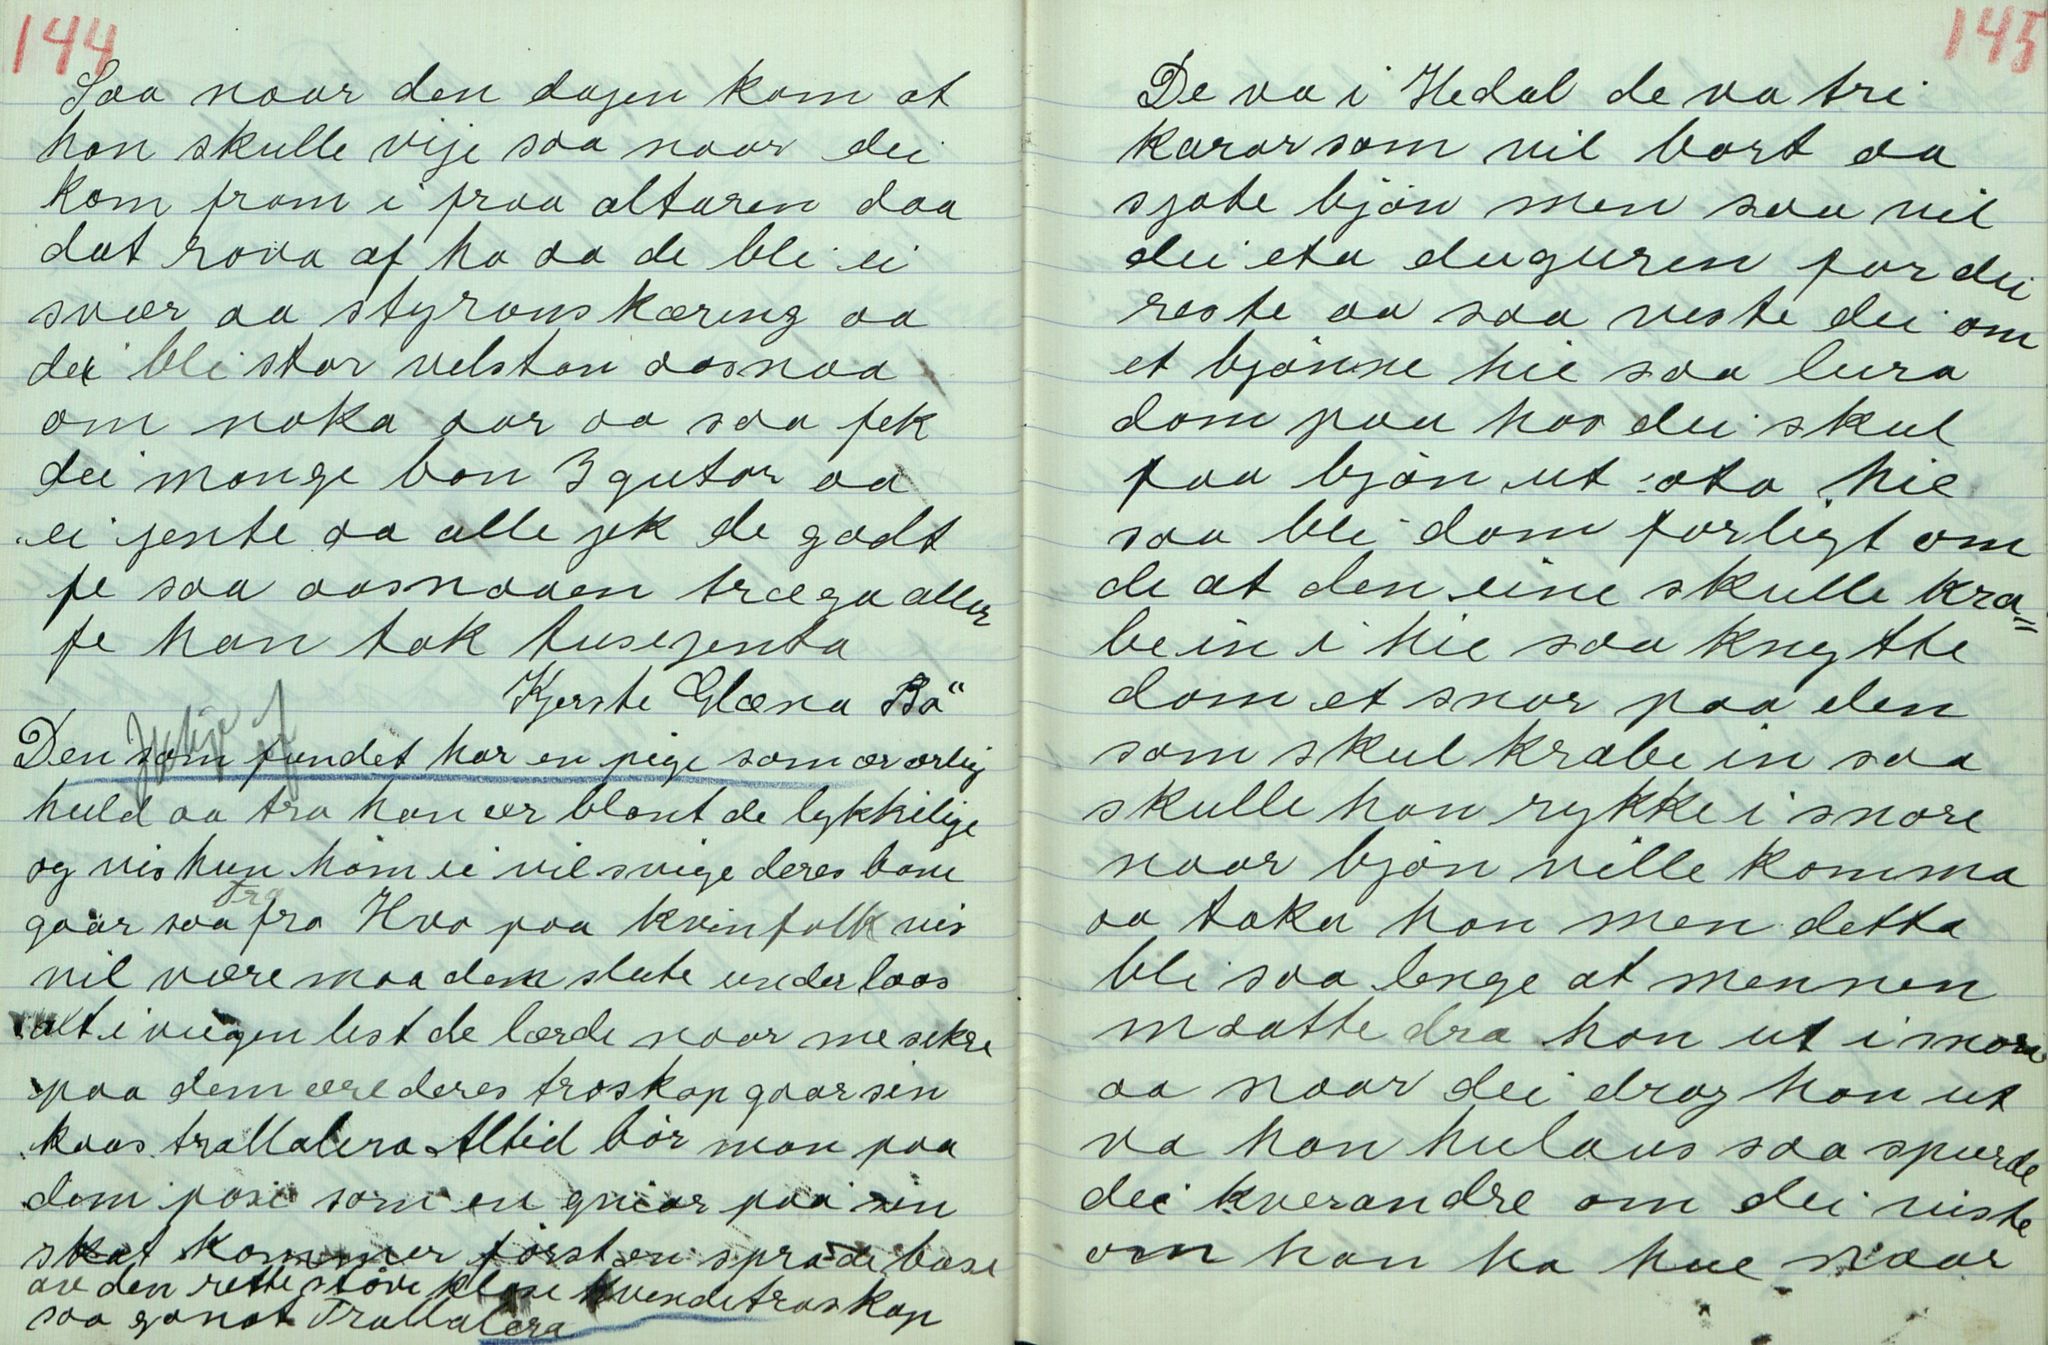 144
Saa naar den dagen kom at
han skulle vije saa naar dei
kom fram i fraa altaren daa
dat rova af ho aa de blei ei
svær aa styrans kæring aa
dei blei stor velstan aasnaa
om noka aar aa saa fek
dei mange bon 3 gutar aa
ei jente aa alle jek de godt
fe saa aasnaaen træga aller
fe han tok tusejenta
Kjerste Glæna Bö"
Den som fundet har en pige som ær ærlig
huld aa tro han ær blant de lykkelige
og vis hun ham ei vil svige deres bone
gaar saa fra Hvo paa kvinfolk vis
vil være maa dem slute under laas
alt i vugen lest de lærde naar me sekre
paa dem ære deres troskap gaar sin
kaas trallalera Altid bör man paa
dem pase som en gniar paa sin
skat kommer först en sprade base
av den rette störe klase kvendetroskap
saa ganat Trallalera
145
De va i Hedal de va tri
karar som vil bort aa
sjote bjön men saa vil
dei eta duguren for dei
reste aa saa veste dei om
et bjönne hie saa lura
dom paa hos dei skul
faa bjön ut ota hie
saa blei dom forligt om
de at den eine skulle kra=
be in i hie saa knytte
dom et snor paa den
som skul krabe in saa
skulle han rykke i snore
naar bjön ville komma
aa taka han men detta
blei saa lenge at mennen
maatte dra han ut i snore
aa naar dei drog han ut
va han hulaus saa spurde
dei kverandre om dei viste
om han ha hue naar